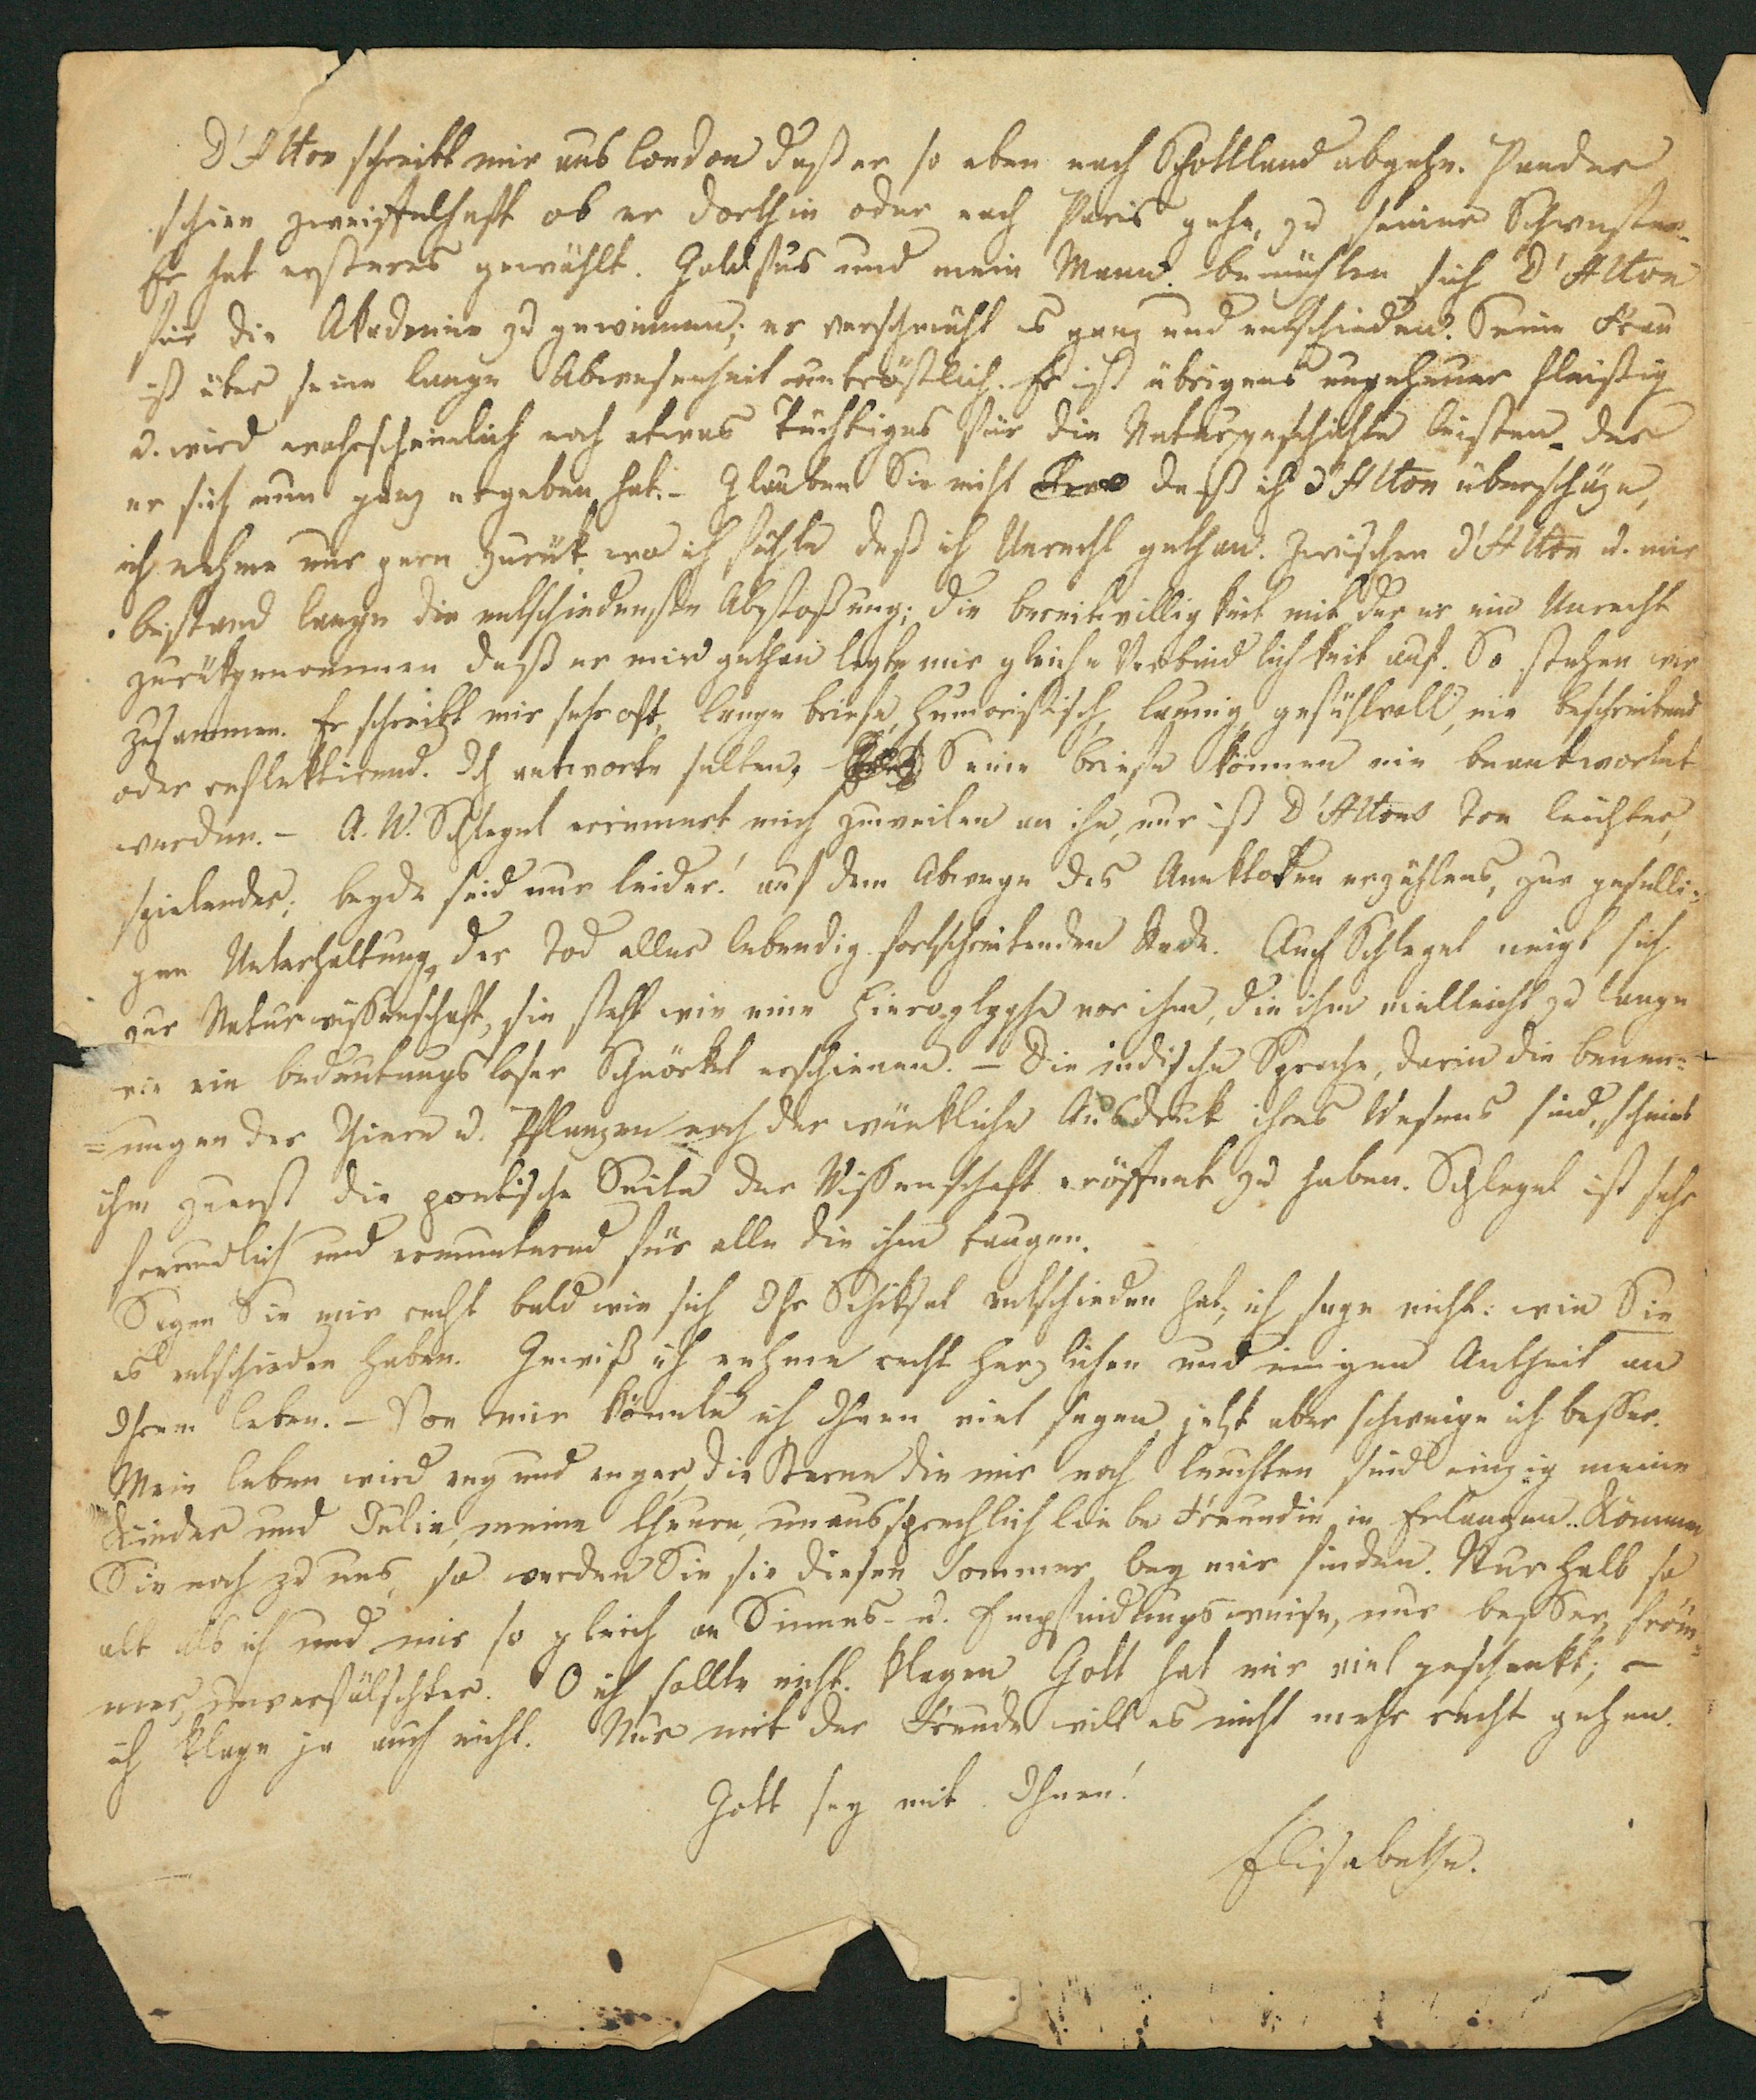 D'Alton schreibt mir aus London daß er so eben nach Schottland abgehe. Pander
schien zweiffelhaft ob er dorthin oder nach Paris gehe, zu seiner Schwester.
Er hat ersteres gewählt. Goldfus und mein Mann bemühten sich D'Alton
für die Akademie zu gewinnen; er verschmäht es ganz und entschieden. Seine Frau
ist über seine lange Abwesenheit untröstlich. Er ist übrigens ungeheuer fleißig
u. wird wahrscheinlich noch etwas Tüchtiges für die Naturgeschichte leisten, der
er sich nun ganz ergeben hat. – Glauben Sie nicht daß ich d'Alton überschäze,
ich nehme nur gern zurük wo ich fühle daß ich Unrecht gethan. Zwischen d'Alton u. mir
bestand lange die entschiedenste Abstoßung; die Bereitwilligkeit mit der er ein Unrecht
zurükgenommen daß er mir gethan legte mir gleiche Verbindlichkeit auf. So stehen wir
zusammen. Er schreibt mir sehr oft, lange Briefe, humoristisch, launig, gefühlvoll, nie beschreibend
oder reflektirend. Ich antworte selten, Seine Briefe können nie beantwortet
werden. – A. W. Schlegel erinnert mich zuweilen an ihn, nur ist D'Altons Ton leichter,
spielender; beyde sind nur leider! auf dem Abwege des Anektoten erzählens, zur geselli=
gen Unterhaltung, der Tod aller lebendig fortschreitenden Rede. Auch Schlegel neigt sich
zur Naturwissenschaft, sie steht wie eine Hieroglyphe vor ihm, die ihm vielleicht zu lange
nie ein bedeutungsloser Schnörkel erschienen. – Die indische Sprache, darin die Benen=
=nungen der Thiere u. Pflanzen noch der würkliche Ausdruk ihres Wesens sind, scheint
ihm zuerst die poetische Seite der Wissenschaft eröffnet zu haben. Schlegel ist sehr
freundlich und ermunternd für alle die ihm taugen.
Sagen Sie mir recht bald wie sich Ihr Schiksal entschieden hat, ich sage nicht: wie Sie
es entschieden haben. Gewiß ich nehme recht herzlichen und innigen Antheil an
Ihrem Leben. – Von mir könnte ich Ihnen viel sagen, jetzt aber schweige ich besser.
Mein Leben wird eng und enger, die Sterne die mir noch leuchten sind einzig meine
Kinder und Julie, meine theure, unaussprechlich liebe Freundin in Erlangen. Kommen
Sie noch zu uns, so werden Sie sie diesen Sommer bey mir finden. Nur halb so
alt als ich und mir so gleich an Sinnes- u. Empfindungsweise, nur besser, fröm=
mer, unverfälschter. O ich sollte nicht klagen, Gott hat mir viel geschenkt; –
ich klage ja auch nicht. Nur mit der Freude will es nicht mehr recht gehen.
Gott sey mit Ihnen!
Elisabethe.